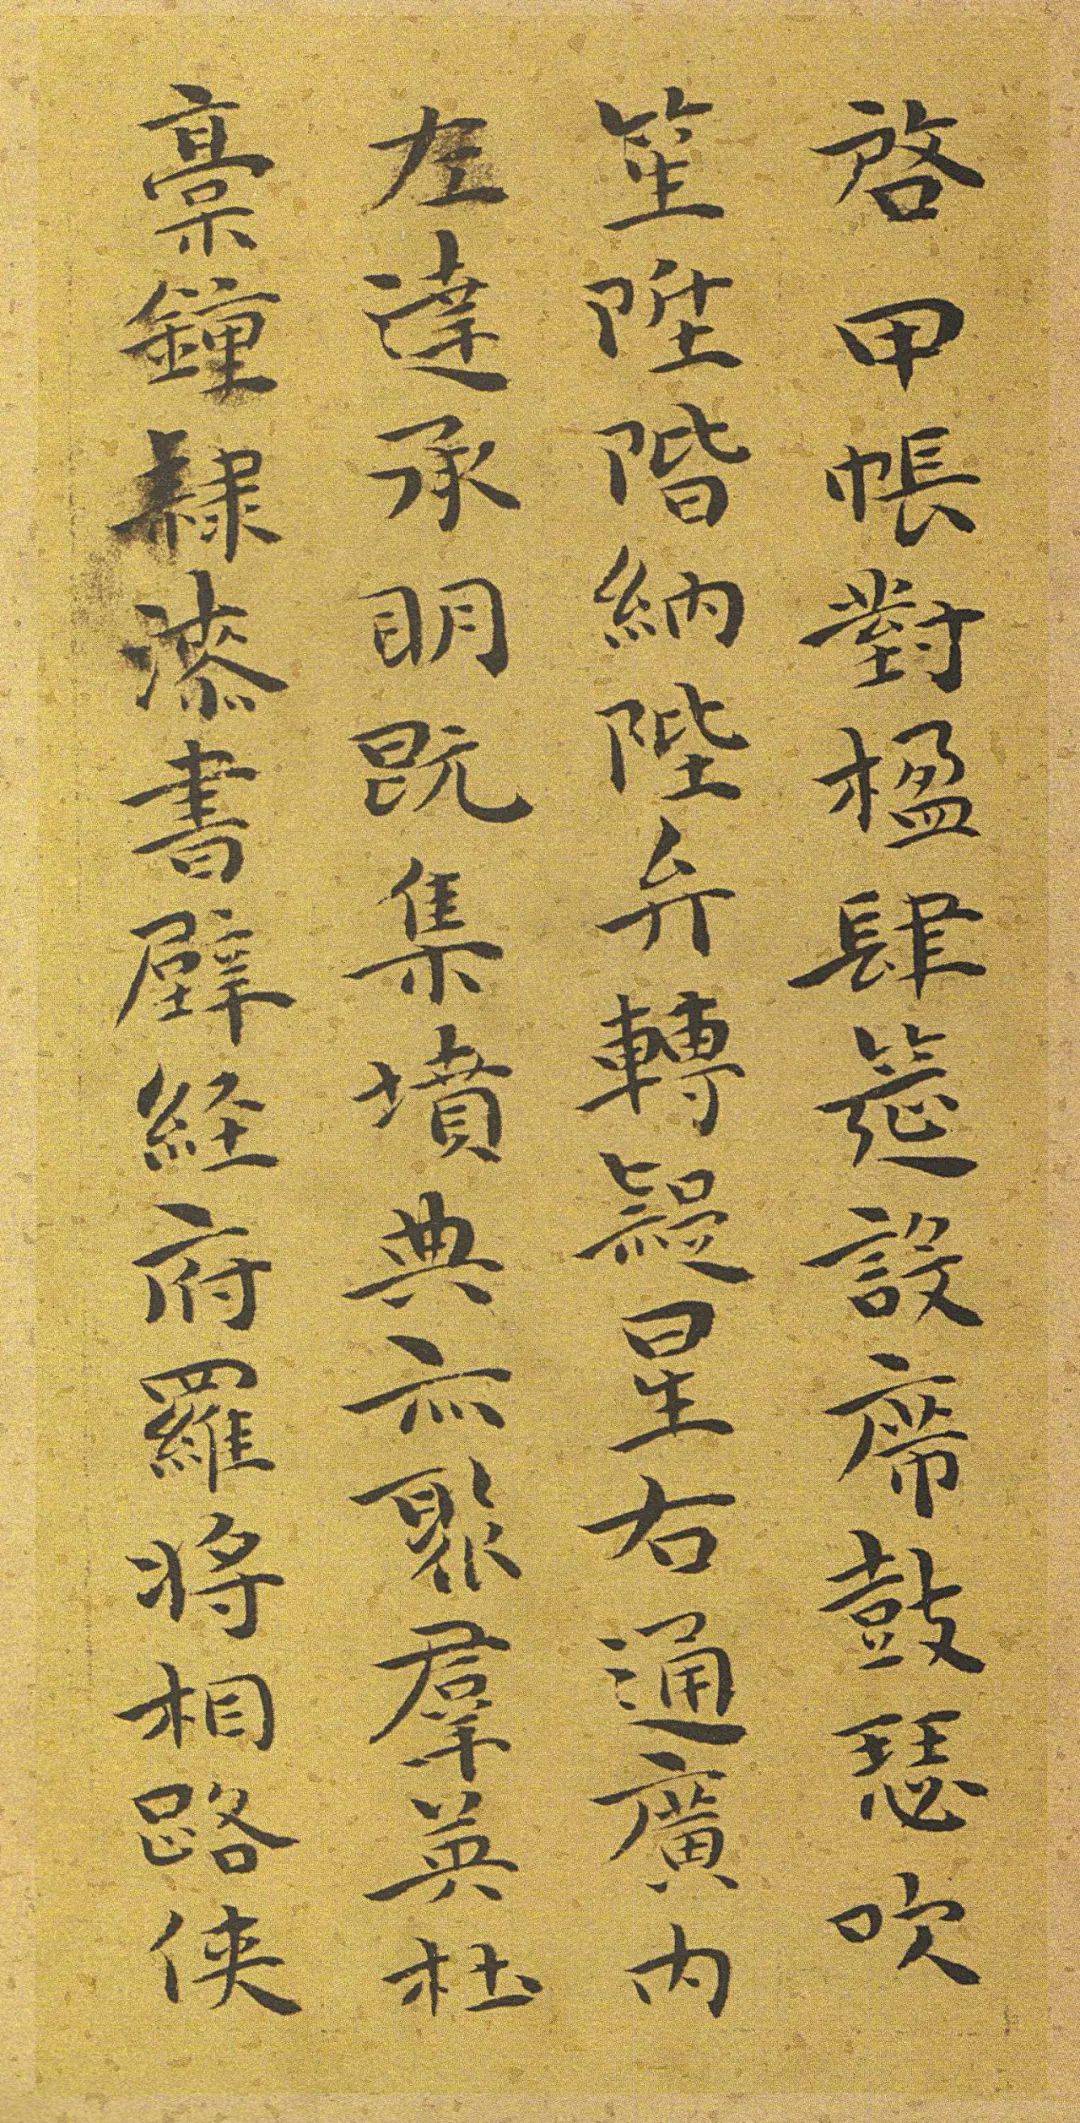 啓甲帳對楹肆筵設席鼓瑟吹
笙陞階納陛弁轉疑星右通廣内
左達承明既集墳典亦聚羣英杜
稾鍾隸漆書壁經府羅將相路俠